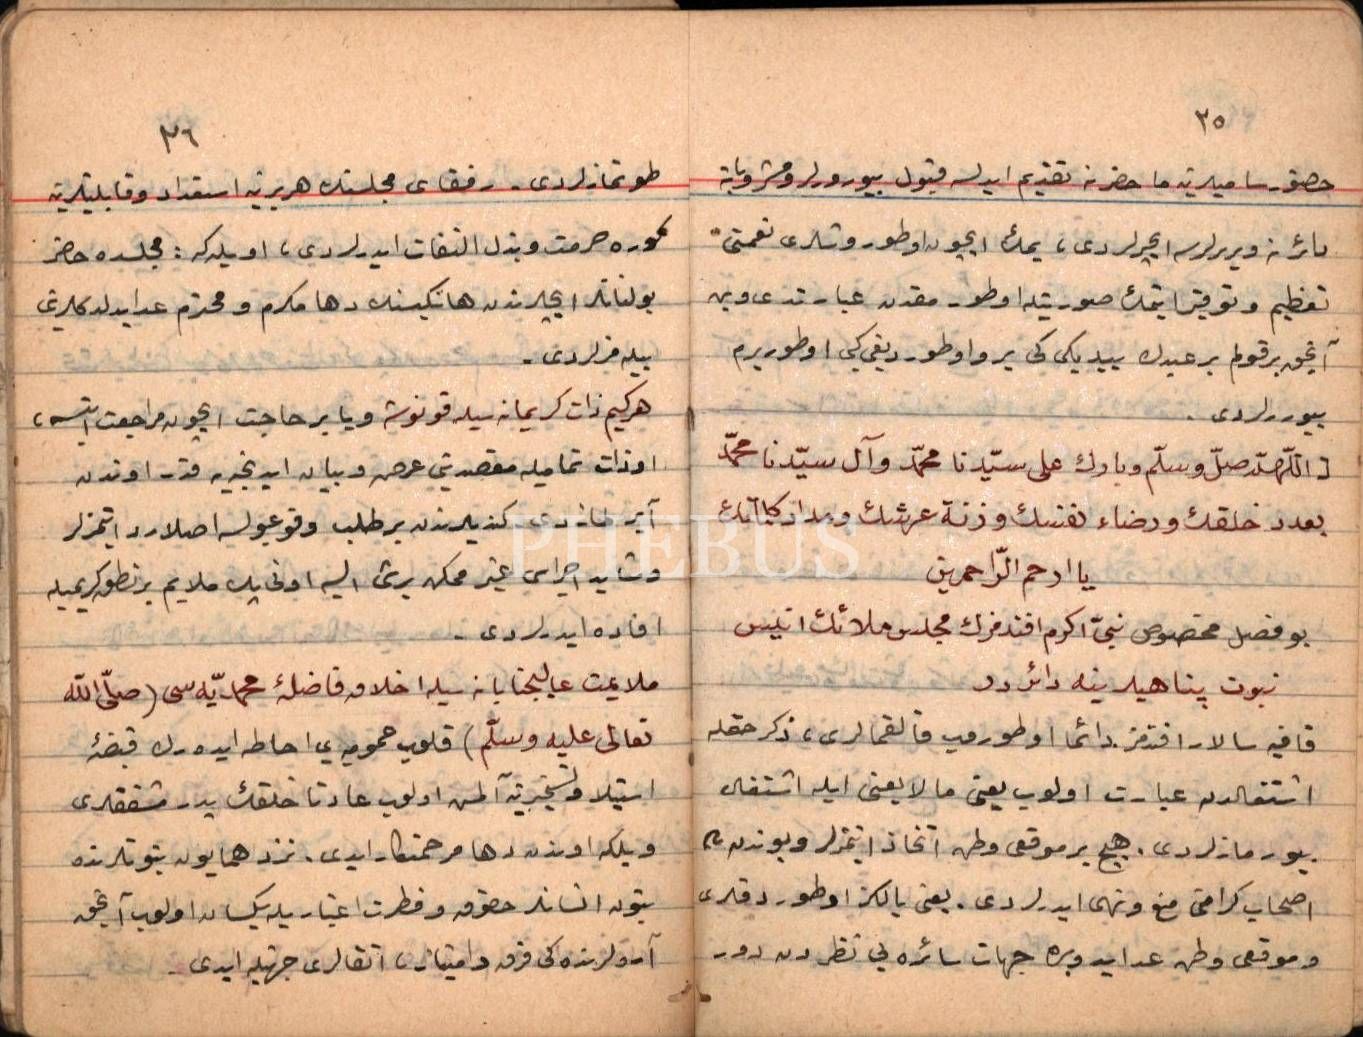 ٣٥
حضور ساميلرينه ما حضر نه تقديم ايدلسه قبول بيورورلر ومشروباته
دائر نه ويريرلرسه ايچرلردى، يمك ايچون اوطوروشلرى نعمتى
تعظيم وتوقير ايتمك صورتيله اوطورمقدن عبارتدى وبن
آنجق بر قولم بر عبدك ييديكى كبى ير و اوطورديغى كبى اوطوريرم
بيوررلردى .
[ اللّهمّ صلّ وسلّم وبارك على سيّدنا محمّد وآل سيّدنا محمّد
بعدد خلقك ورضاء نفسك وزنة عرشك ومداد كلماتك
يا ارحم الرّاحمين
بو فصل مخصوص نبىّ اكرم افندمزك مجلس ملائك انيس
نبوت پناهيلرينه دائردر
قافيه سالار افندمز دائما اوطوروب قالقمالرى، ذكر حقله
اشتغالدن عبارت اولوب يعنى ما لا يعنى ايله اشتغال
بيورمازلردى . هيچ بر موقعى وطن اتخاذ ايتمزلر وبوندن
اصحاب كرامى منع ونهى ايدرلردى . يعنى يالكز اوطوردقلرى
و موقعى وطن عد ايدوبده جهات سائره يى نظردن دور
٣٦
طوتمازلردى . رفقاى مجلسنك هربرينه استعداد وقابليتلرينه
كوره حرمت وبذل التفات ايدرلردى، اويله كه : مجلسده حاضر
بولنانلر ايچلرندن هانكيسنك دها مكرم و محترم عد ايدلدكلرينى
بيله مزلردى .
هركيم ذات كريمانه سيله قونوشه ويا بر حاجت ايچون مراجعت ايتسه،
او ذات تماميله مقصدينى عرض و بيان ايدنجيه قدر اوندن
آيرلمازدى . كنديلرندن بر طلب وقوعبولسه اصلا رد ايتمزلر
وشايد اجراسى غير ممكن برشى ايسه اونى پك ملايم بر نطق كريميله
افاده ايدرلردى .
ملايمت عاليجنابانه سيله اخلاق فاضلۀ محمديّه سى (صلّى الله
تعالى عليه وسلّم) قلوب عموميه يى احاطه ايده رك قبضۀ
استيلا وتسخيرينه آلمش اولوب عادتا خلقك پدر مشفقلرى
وبلكه اوندن دها مرحمتكار ايدى . نزد همايون نبوتلرنده
بتون انسانلر حقوق و فطرت اعتباريله يكسان اولوب آنجق
آرالرنده كى فرق و امتياز، اتقالرى جهتيله ايدى .